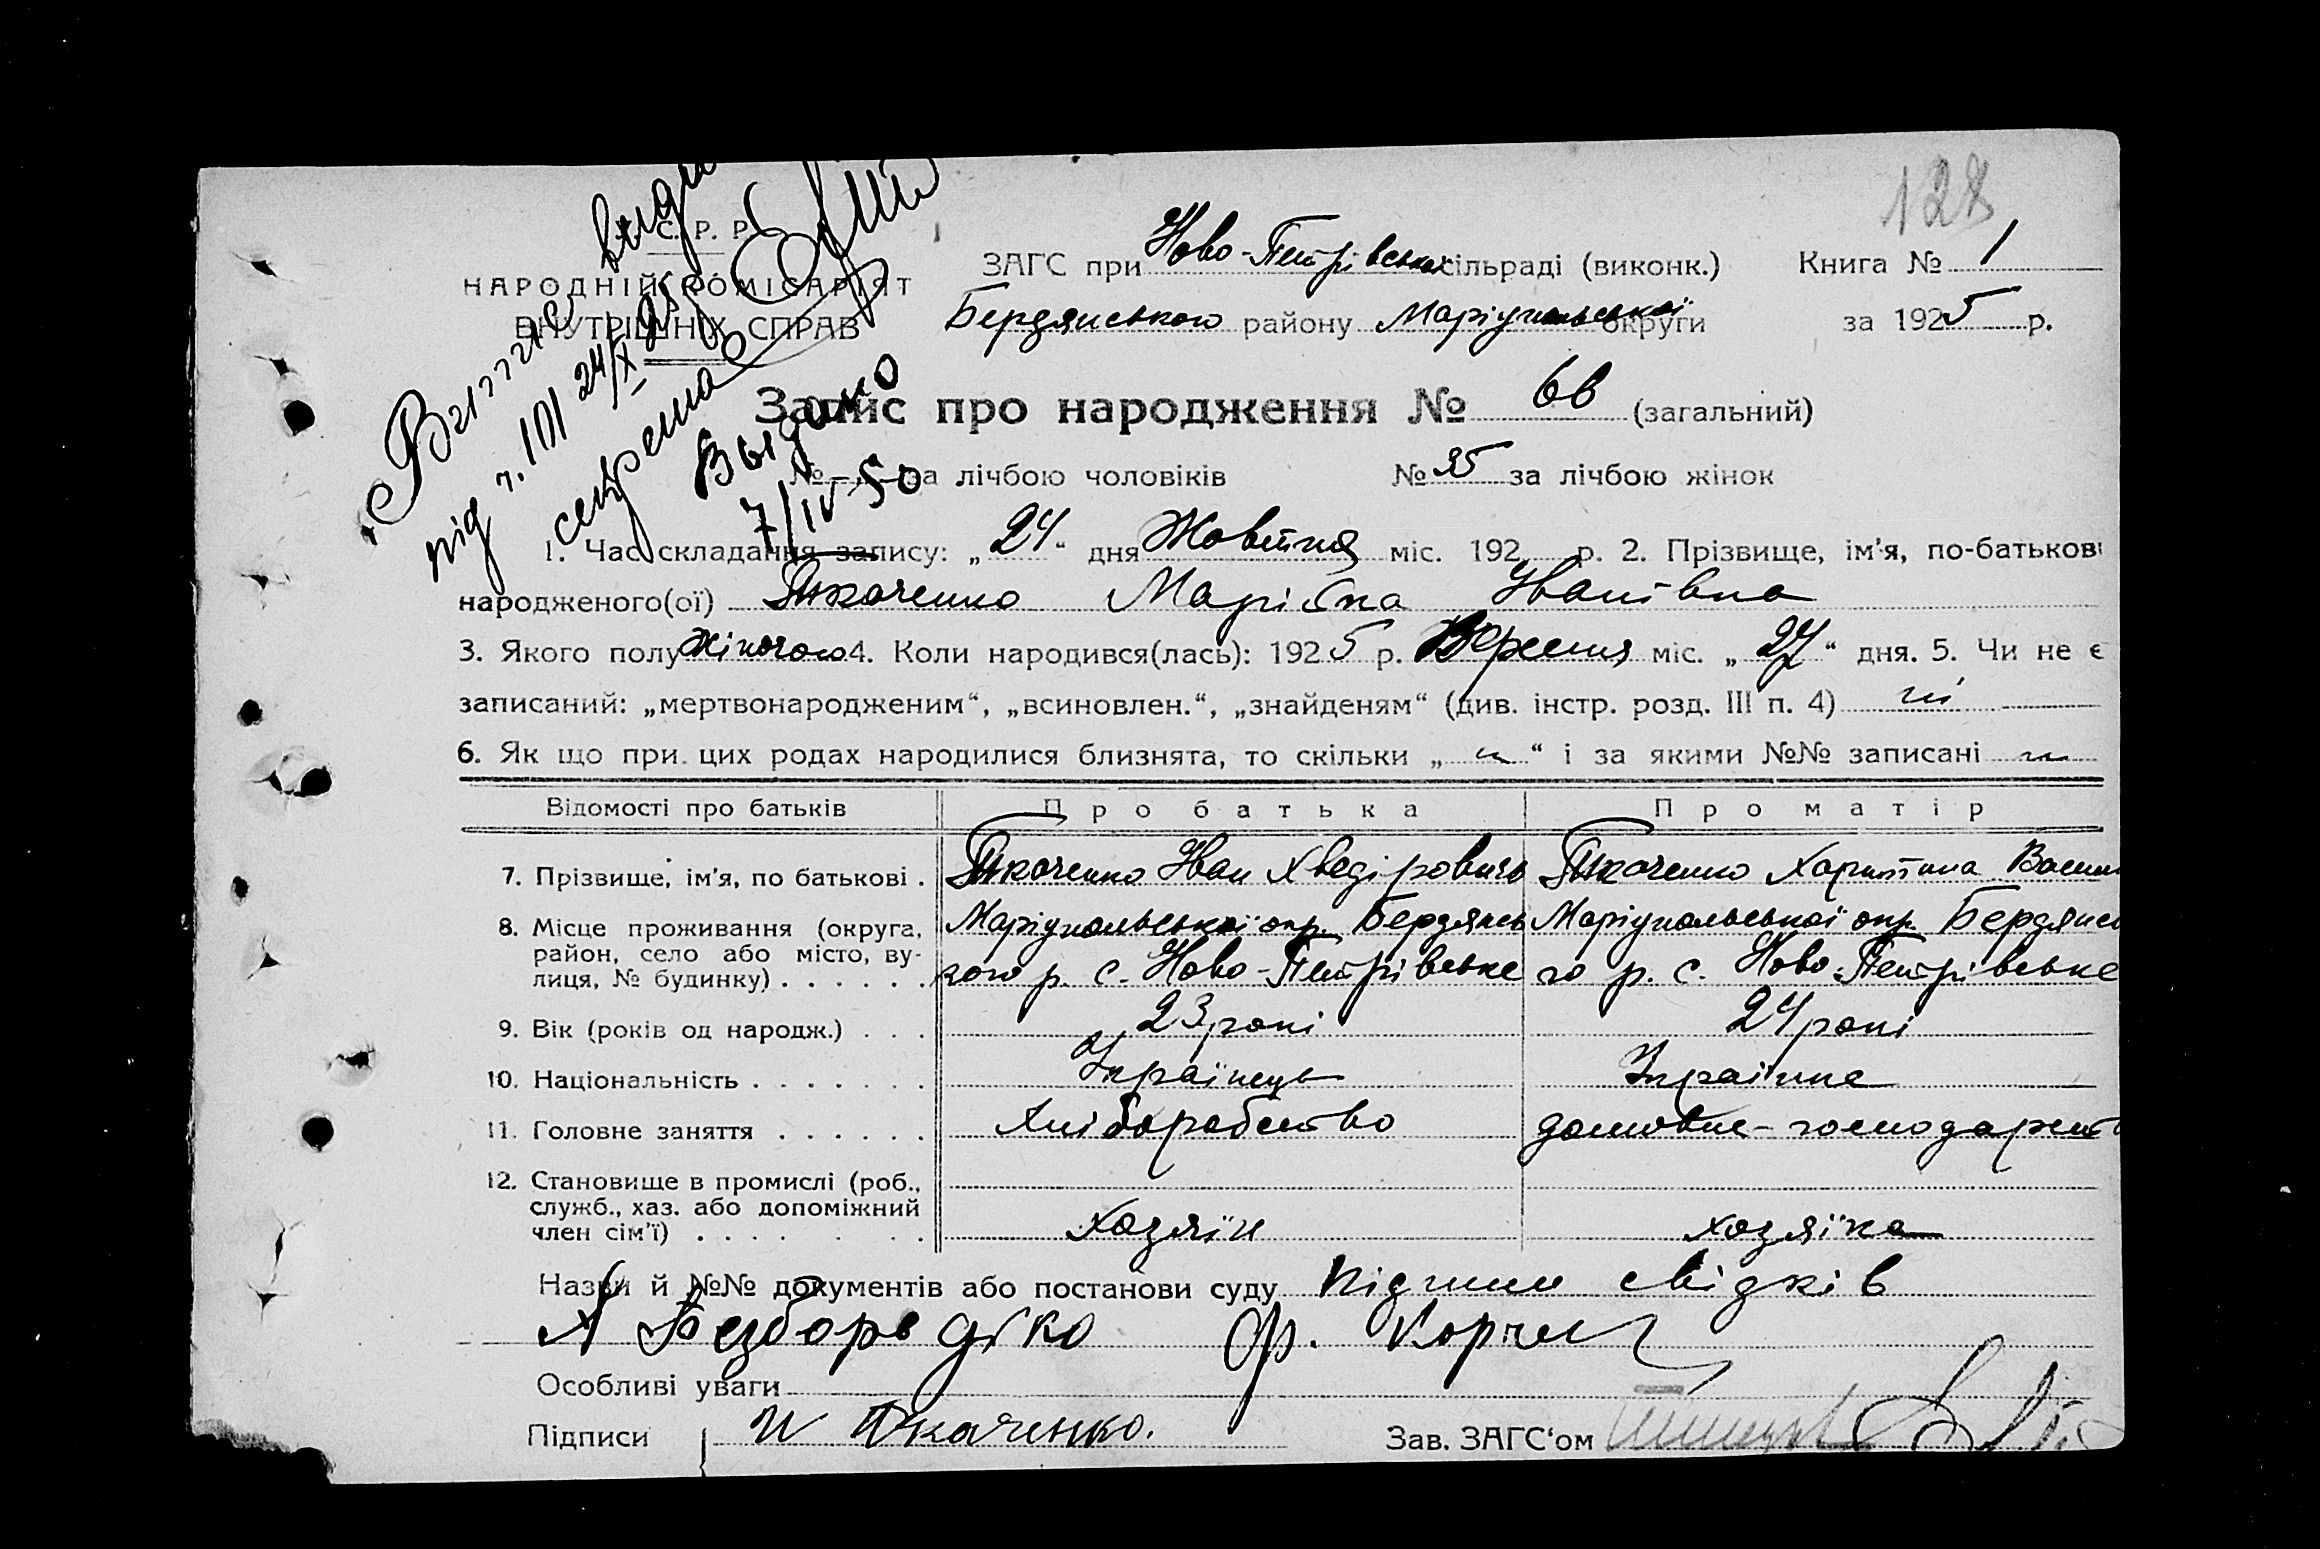 128
У. С. Р. Р.
НАРОДНІЙ КОМІСАРІЯТ
ВНУТРІШНІХ СПРАВ
ЗАГС при Ново-Петрівській сільраді (виконк.) Книга № 1
Бердянського району Маріупольської округи за 1925 р.
Витяг видан
під ч. 101 24/X 25
секретар
Выдано
7/IV-50
Запис про народження № 66 (загальний)
№ — за лічбою чоловіків № 35 за лічбою жінок
1. Час складання запису: „24“ дня Жовтня міс. 192 р. 2. Прізвище, ім'я, по-батькові
народженого(ої) Ткаченко Марія Іванівна
3. Якого полу жіночого 4. Коли народився(лась): 1925 р. Вересня міс. „27“ дня. 5. Чи не є
записаний: „мертвонародженим“, „всиновлен.“, „знайденям“ (див. інстр. розд. III п. 4) ні
6. Як що при цих родах народилися близнята, то скільки „ “ і за якими №№ записані
Відомості про батьків Про батька Про матір
7. Прізвище, ім'я, по батькові . Ткаченко Іван Хведірович Ткаченко Харитина Васил
8. Місце проживання (округа, Маріупольської окр. Бердянсь Маріупольської окр. Бердянсь
район, село або місто, ву-
лиця, № будинку) . . . . . . кого р. с. Ново-Петрівське го р. с. Ново-Петрівське
9. Вік (років од народж.) . . . 23 рокі 24 рокі
10. Національність . . . . . . . Українець Українка
11. Головне заняття . . . . . . Хліборобство домовне-господарств
12. Становище в промислі (роб.,
служб., хаз. або допоміжний
член сім'ї) . . . . . . . Хазяїн хазяїка
Назви й №№ документів або постанови суду Підписи свідків
А Безбородько Ф.
Особливі уваги
Підписи И Ткаченко. Зав. ЗАГС‘ом